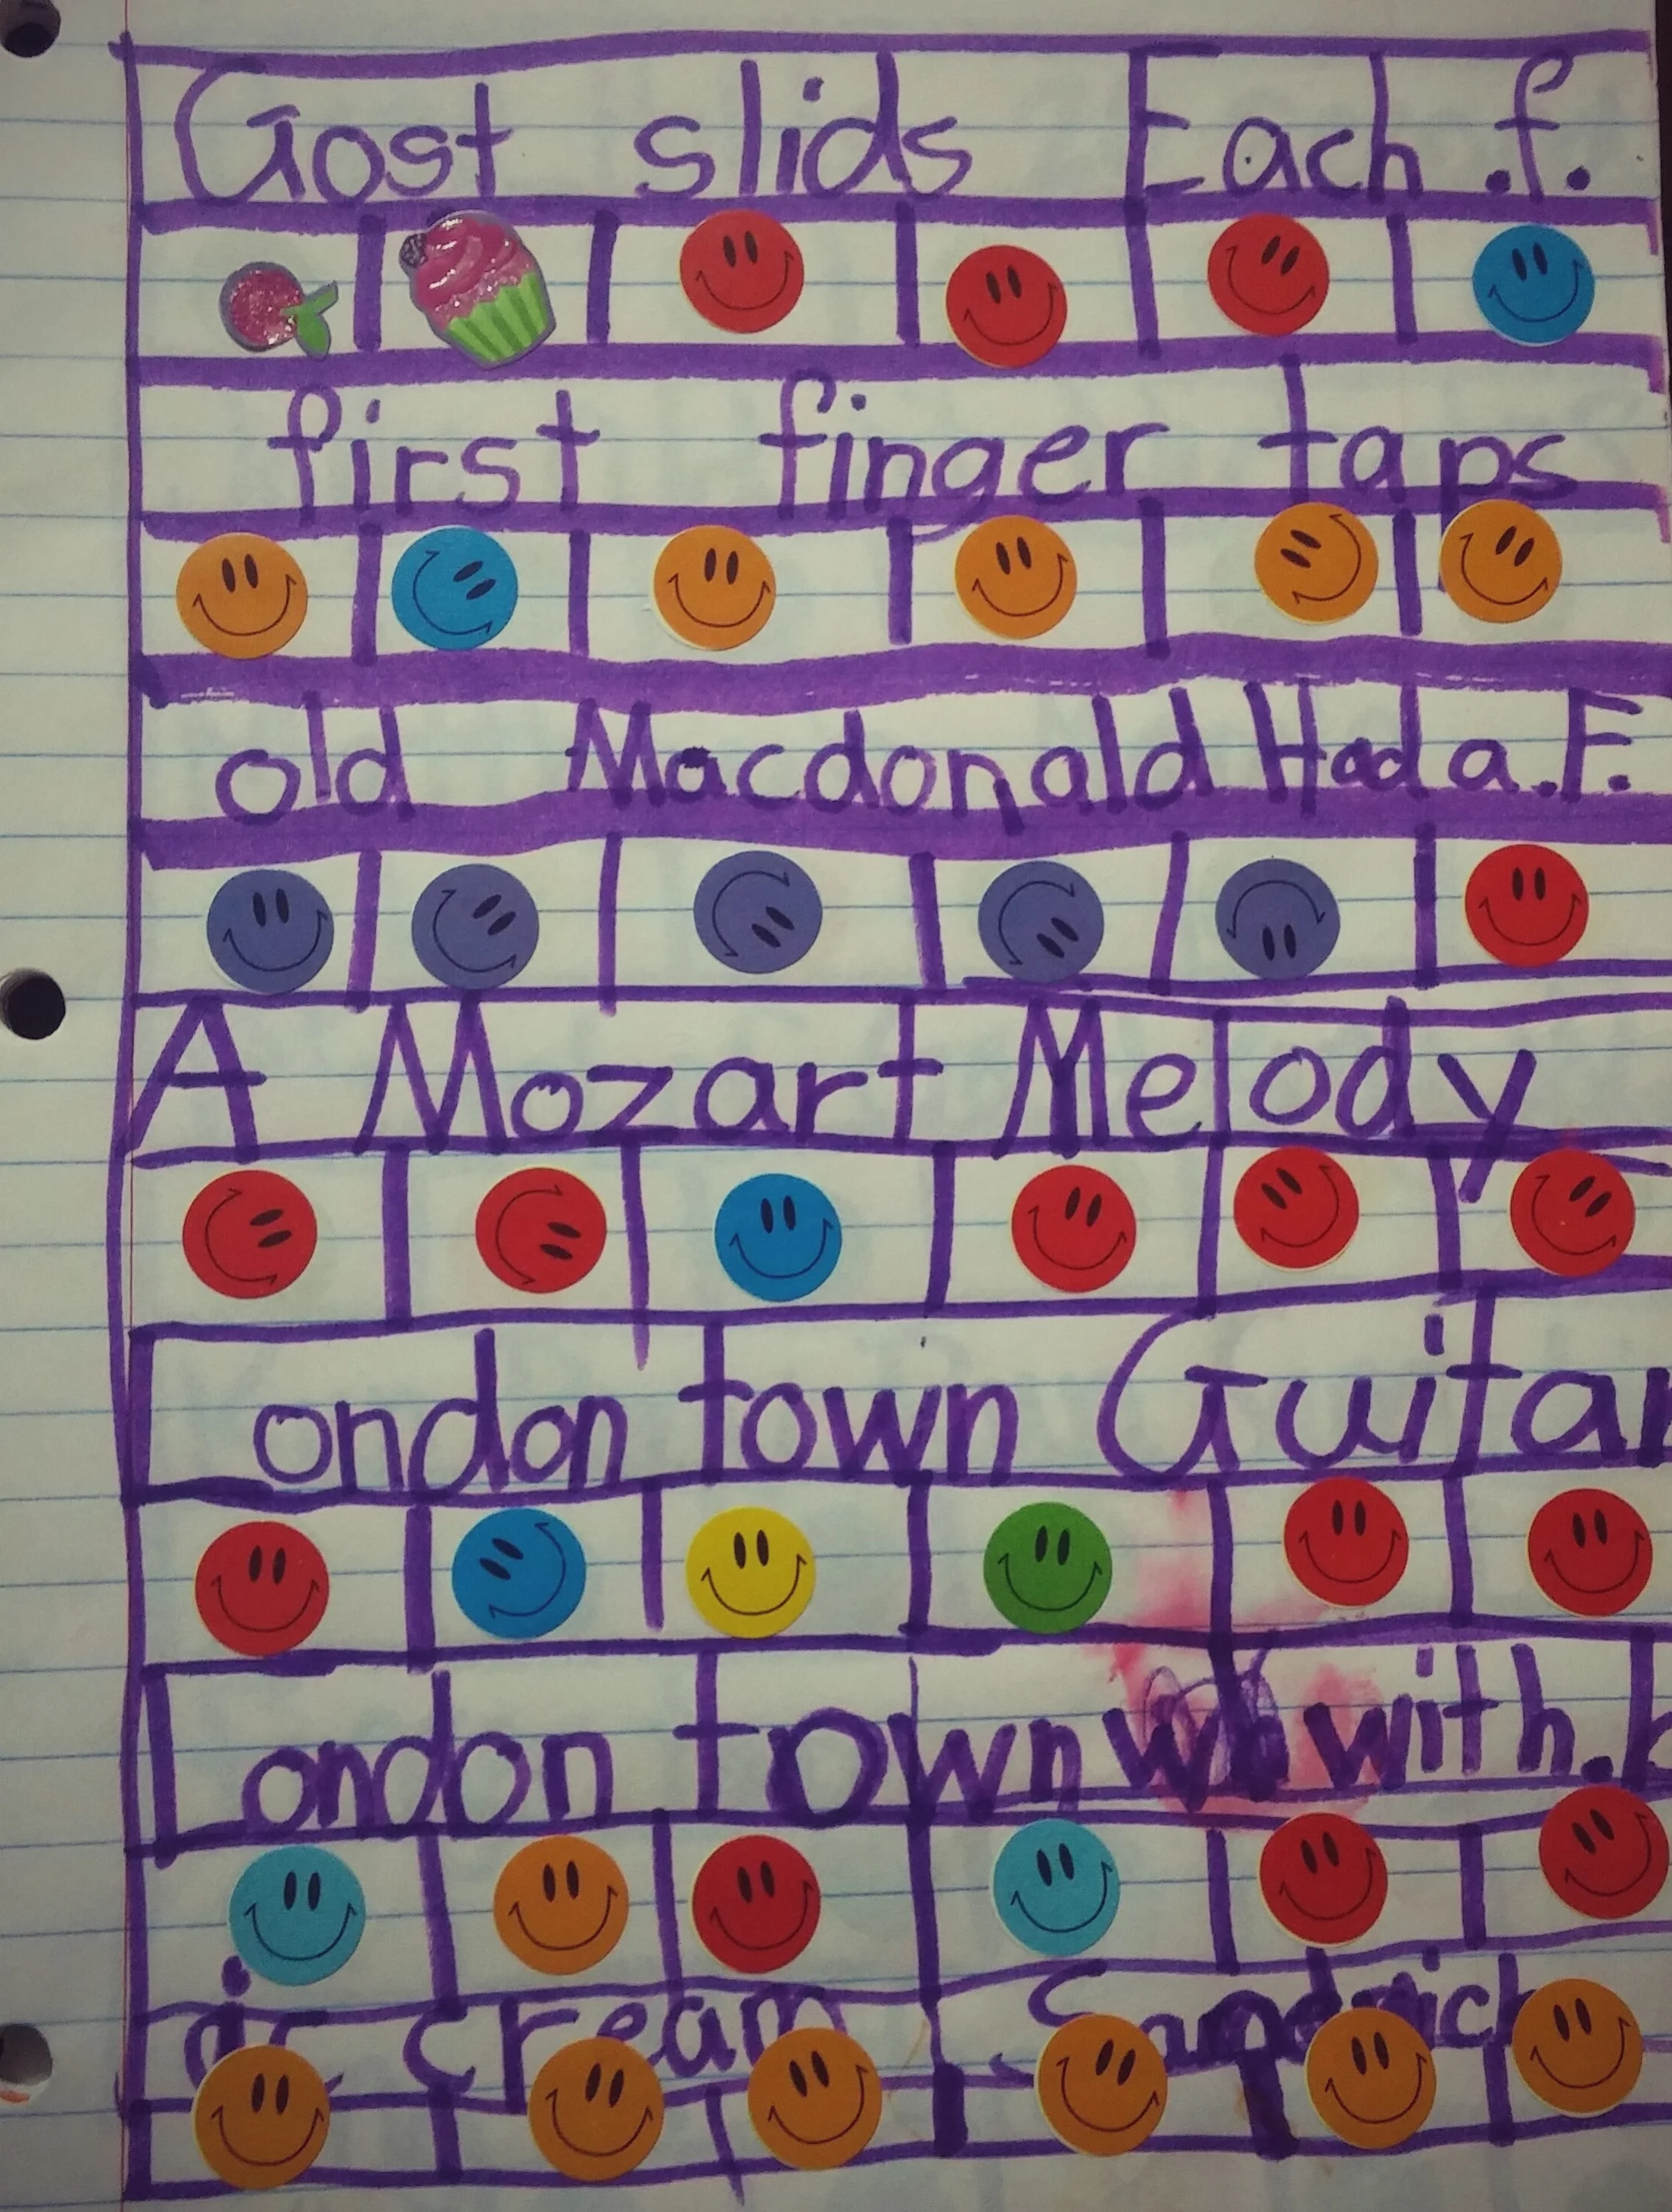 Gost slids Each .f.
first finger taps
old Macdonald Had a .F.
A Mozart Melody
London town Guitar
London town with.
cream Sandwich